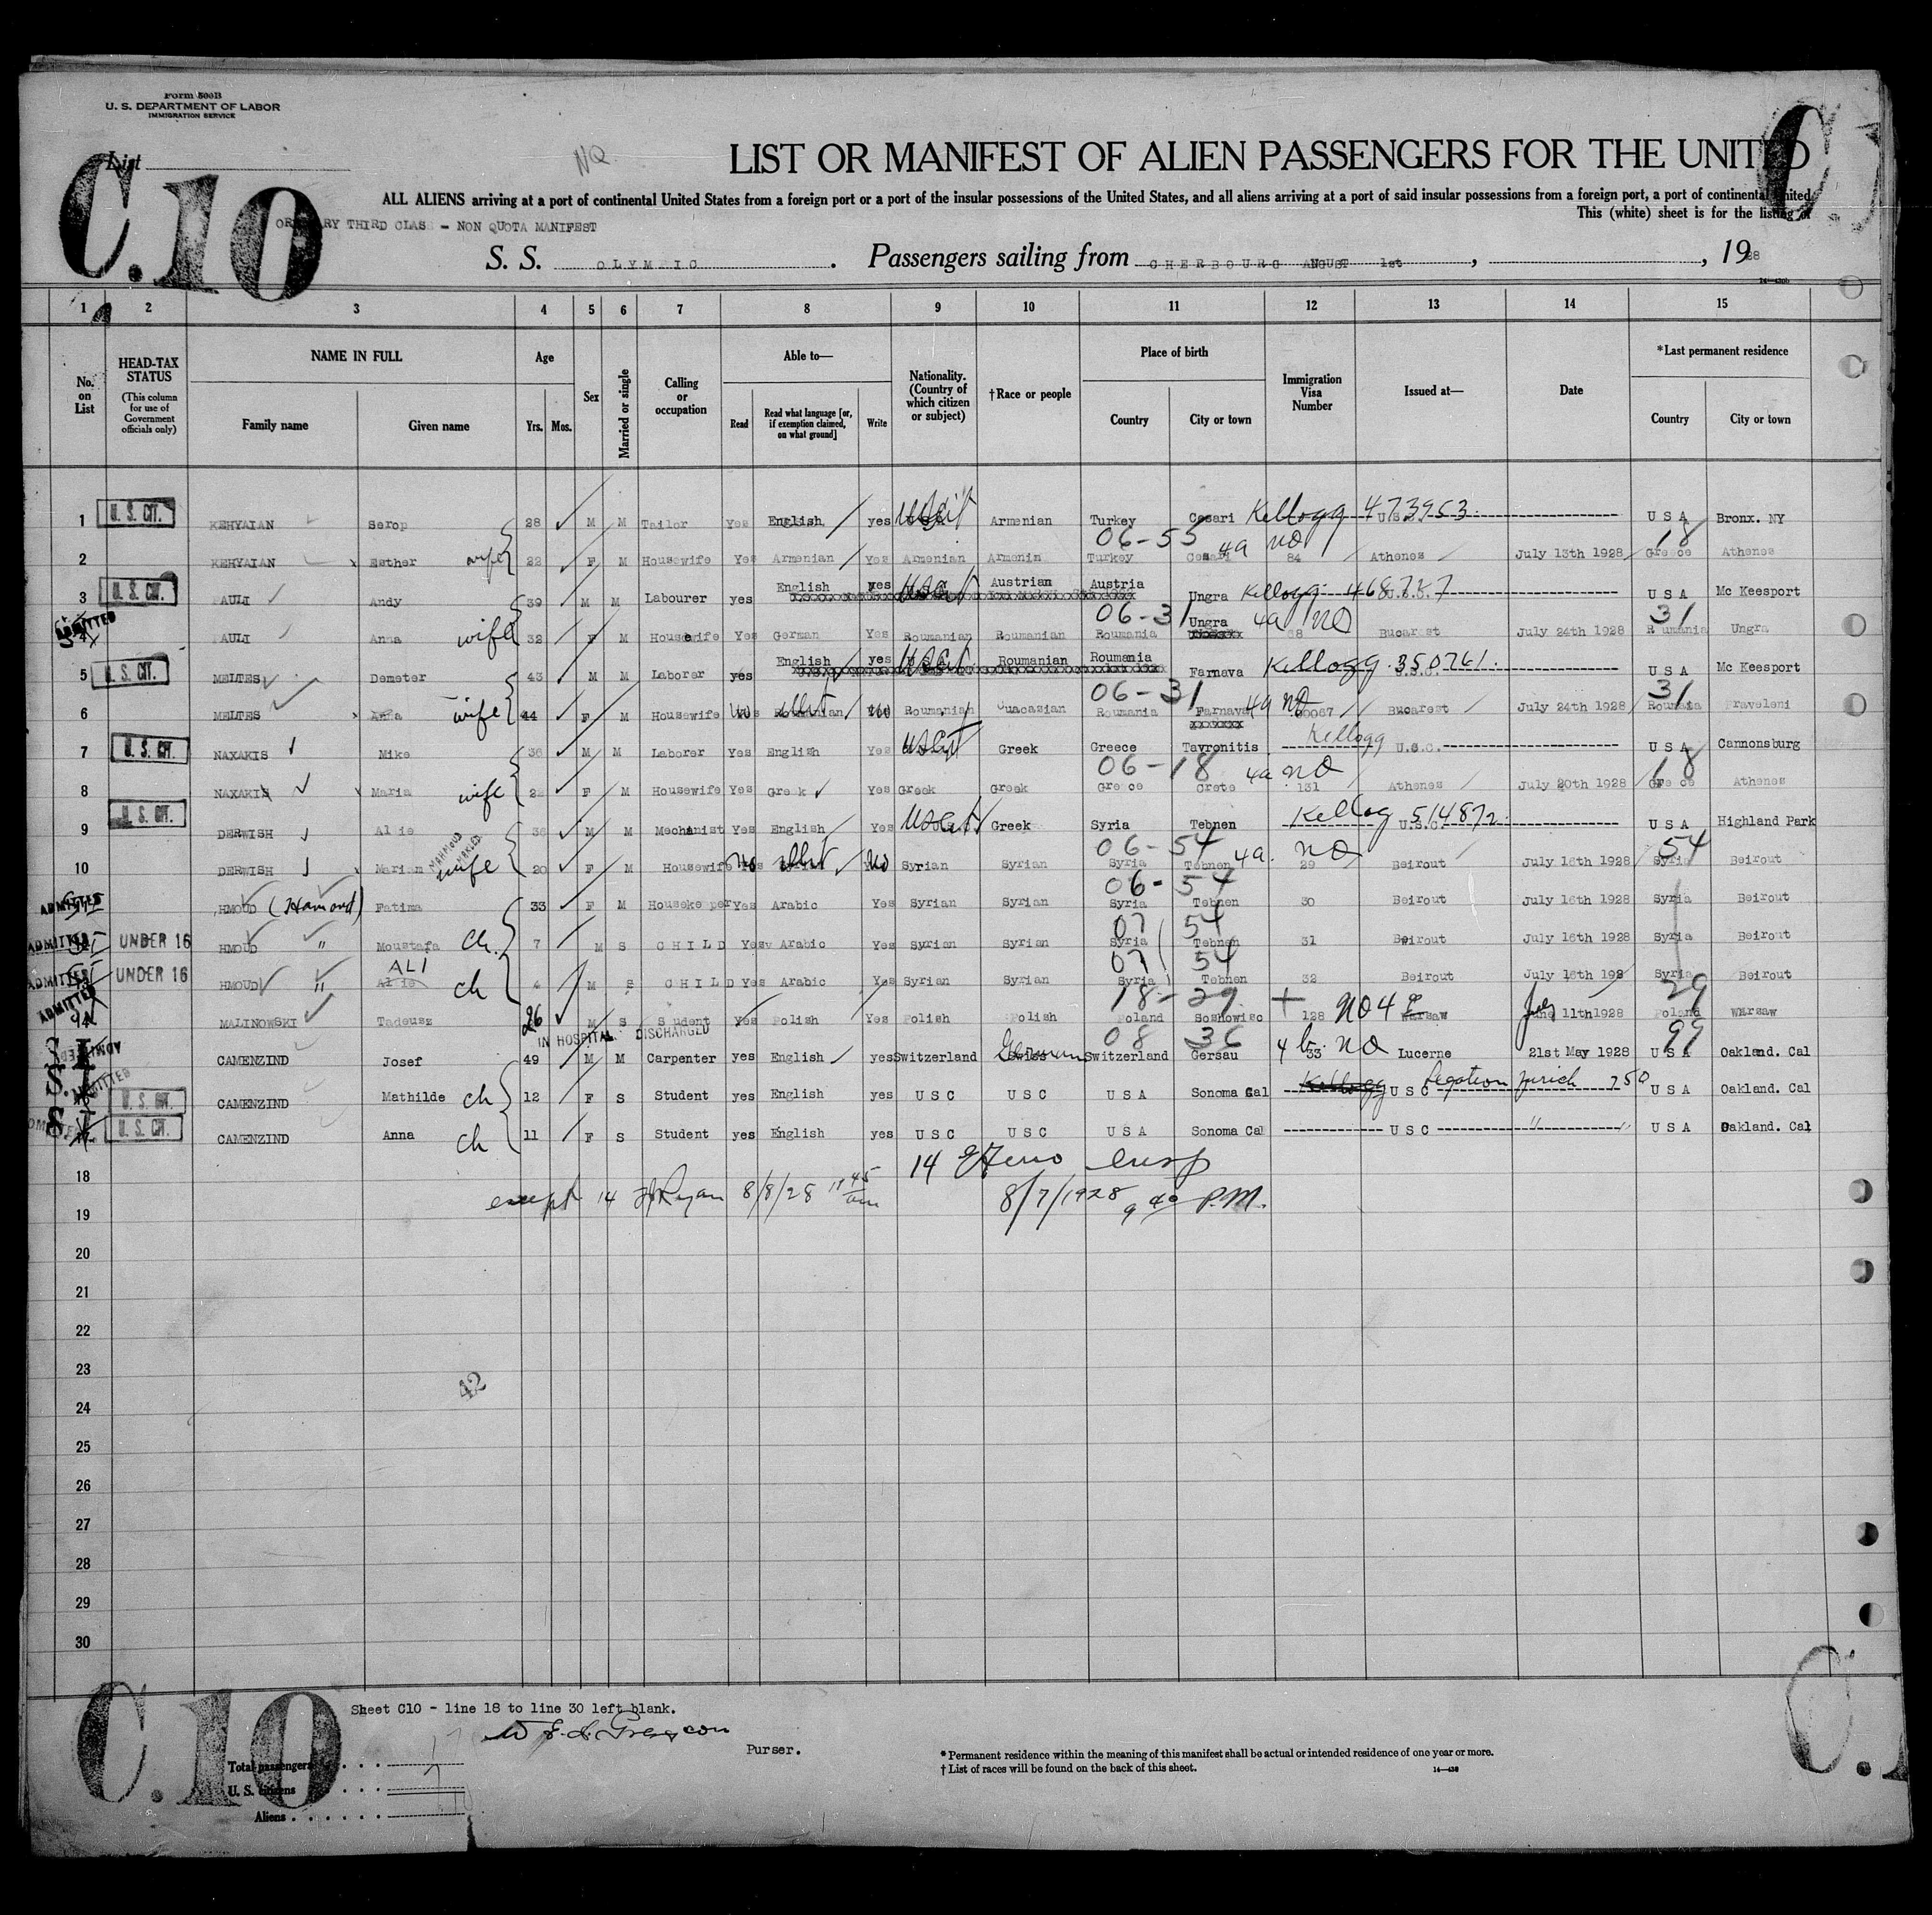 Form 500B
U. S. DEPARTMENT OF LABOR
IMMIGRATION SERVICE
List
NQ
C.10
LIST OR MANIFEST OF ALIEN PASSENGERS FOR THE UNITED
ALL ALIENS arriving at a port of continental United States from a foreign port or a port of the insular possessions of the United States, and all aliens arriving at a port of said insular possessions from a foreign port, a port of continental United
This (white) sheet is for the listing of
ORDINARY THIRD CLASS - NON QUOTA MANIFEST
S. S. OLYMPIC. Passengers sailing from CHERBOURG AUGUST 1st, , 1928
1 2 3 4 5 6 7 8 9 10 11 12 13 14 15
No. on List
HEAD-TAX STATUS (This column for use of Government officials only)
NAME IN FULL
Family name Given name
Age Yrs. Mos.
Sex
Married or single
Calling or occupation
Able to— Read Read what language [or, if exemption claimed, on what ground] Write
Nationality. (Country of which citizen or subject)
†Race or people
Place of birth Country City or town
Immigration Visa Number
Issued at—
Date
*Last permanent residence Country City or town
1 U. S. CIT. KEHYAIAN Serop 28 M M Tailor Yes English yes US Cit Armenian Turkey Cesari Kellogg 473953 U.S.C. U S A Bronx. NY
06-55 4a NQ 18
2 KEHYAIAN Esther wife 22 F M Housewife Yes Armenian Yes Armenian Armenin Turkey Cesari 84 Athenes July 13th 1928 Greece Athenes
3 U. S. CIT. PAULI Andy 39 M M Labourer yes English yes US Cit Austrian Austria Ungra Kellogg 468727 U.S.C. U S A Mc Keesport
06-31 4a NQ 31
ADMITTED PAULI Anna wife 32 F M Housewife Yes German Yes Roumanian Roumanian Roumania Ungra 68 Bucarest July 24th 1928 Roumania Ungra
5 U. S. CIT. MELTES Demeter 43 M M Laborer yes English yes US Cit Roumanian Roumania Farnava Kellogg 350761 U.S.C. U S A Mc Keesport
06-31 4a NQ 31
6 MELTES Anna wife 44 F M Housewife No Roumanian No Roumanian Caucasian Roumania Farnava 00067 Bucarest July 24th 1928 Roumania Praveleni
7 U. S. CIT. NAXAKIS Mike 36 M M Laborer Yes English Yes US Cit Greek Greece Tavronitis Kellogg U.S.C. U S A Cannonsburg
06-18 4a NQ 18
8 NAXAKIS Maria wife 22 F M Housewife Yes Greek Yes Greek Greek Greece Crete 131 Athenes July 20th 1928 Greece Athenes
9 U. S. CIT. DERWISH Allie 36 M M Mechanist Yes English Yes US Cit Greek Syria Tebnen Kellog 514872 U.S.C. U S A Highland Park
MAHMOUD 06-54 4a. NQ 54
10 DERWISH Mariam wife 20 F M Housewife No No Syrian Syrian Syria Tebnen 29 Beirout July 16th 1928 Syria Beirout
06-54
ADMITTED HMOUD (Hamoud) Fatima 33 F M Housekeper Yes Arabic Yes Syrian Syrian Syria Tebnen 30 Beirout July 16th 1928 Syria Beirout
07 54
ADMITTED UNDER 16 HMOUD " Moustafa ch. 7 M S CHILD Yes Arabic Yes Syrian Syrian Syria Tebnen 31 Beirout July 16th 1928 Syria Beirout
ALI 07 54
ADMITTED UNDER 16 HMOUD " Allie ch 4 M S CHILD Yes Arabic Yes Syrian Syrian Syria Tebnen 32 Beirout July 16th 192 Syria Beirout
18-29 29
ADMITTED MALINOWSKI Tadeusz 26 M S Student Yes Polish Yes Polish Polish Poland Soshowisc 128 NQ 4 E Warsaw July June 11th 1928 Poland Warsaw
IN HOSPITAL DISCHARGED 08 36 99
S.I ADMITTED CAMENZIND Josef 49 M M Carpenter yes English yes Switzerland German Swiss Switzerland Gersau 4b. 33 NQ Lucerne 21st May 1928 U S A Oakland. Cal
S.I ADMITTED U. S. CIT. CAMENZIND Mathilde ch 12 F S Student yes English yes U S C U S C U S A Sonoma Cal Kellogg U S C Legation Zurich 750 U S A Oakland. Cal
S.I ADMITTED U. S. CIT. CAMENZIND Anna ch 11 F S Student yes English yes U S C U S C U S A Sonoma Cal U S C " " U S A Oakland. Cal
18 14
except 14 J Ryan 8/8/28 11 45 am 8/7/1928 9 40 P.M.
19
20
21
22
23
42
24
25
26
27
28
29
30
C.10
Sheet C10 - line 18 to line 30 left blank.
Purser.
Total passengers
U. S. citizens
Aliens
* Permanent residence within the meaning of this manifest shall be actual or intended residence of one year or more.
† List of races will be found on the back of this sheet.
14—430